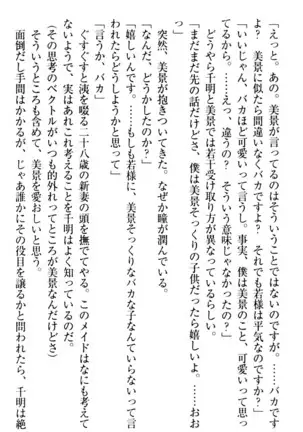 「えっと、あの。美景が言ってるのはそういうことではないのですが。……バカです
よ？　美景に似たら間違いなくバカですよ？　それでも若様は平気なのですか？」
「いいじゃん、バカほど可愛いって言うし。事実、僕は美景のこと、可愛いって思っ
てるから。……え、違うの？　そういう意味じゃなかったの？」
どうやら千明と美景では若干受け取り方が異なっているらしい。
「まだまだ先の話だけどさ、僕は美景そっくりの子供だったら嬉しいよ。……おお
っ」
突然、美景が抱きついてきた。なぜか瞳が潤んでいる。
「なんだ、どうかしたのか？」
「嬉しいんです。……もしも若様に、美景そっくりなバカな子なんていらないって言
われたらどうしようかと思って」
「言うか、バカ」
ぐすぐすと洟を啜る二十八歳の新妻の頭を撫でてやる。このメイドはなにも考えて
ないようで、実はあれこれ考えることを千明は知っているのだ。
（その思考のベクトルがいつも的外れってところが美景なんだけどさ）
そういうところも含めて、美景を愛おしいと思う。
面倒だし手間はかかるが、じゃあ誰かにその役目を譲るかと問われたら、千明は絶